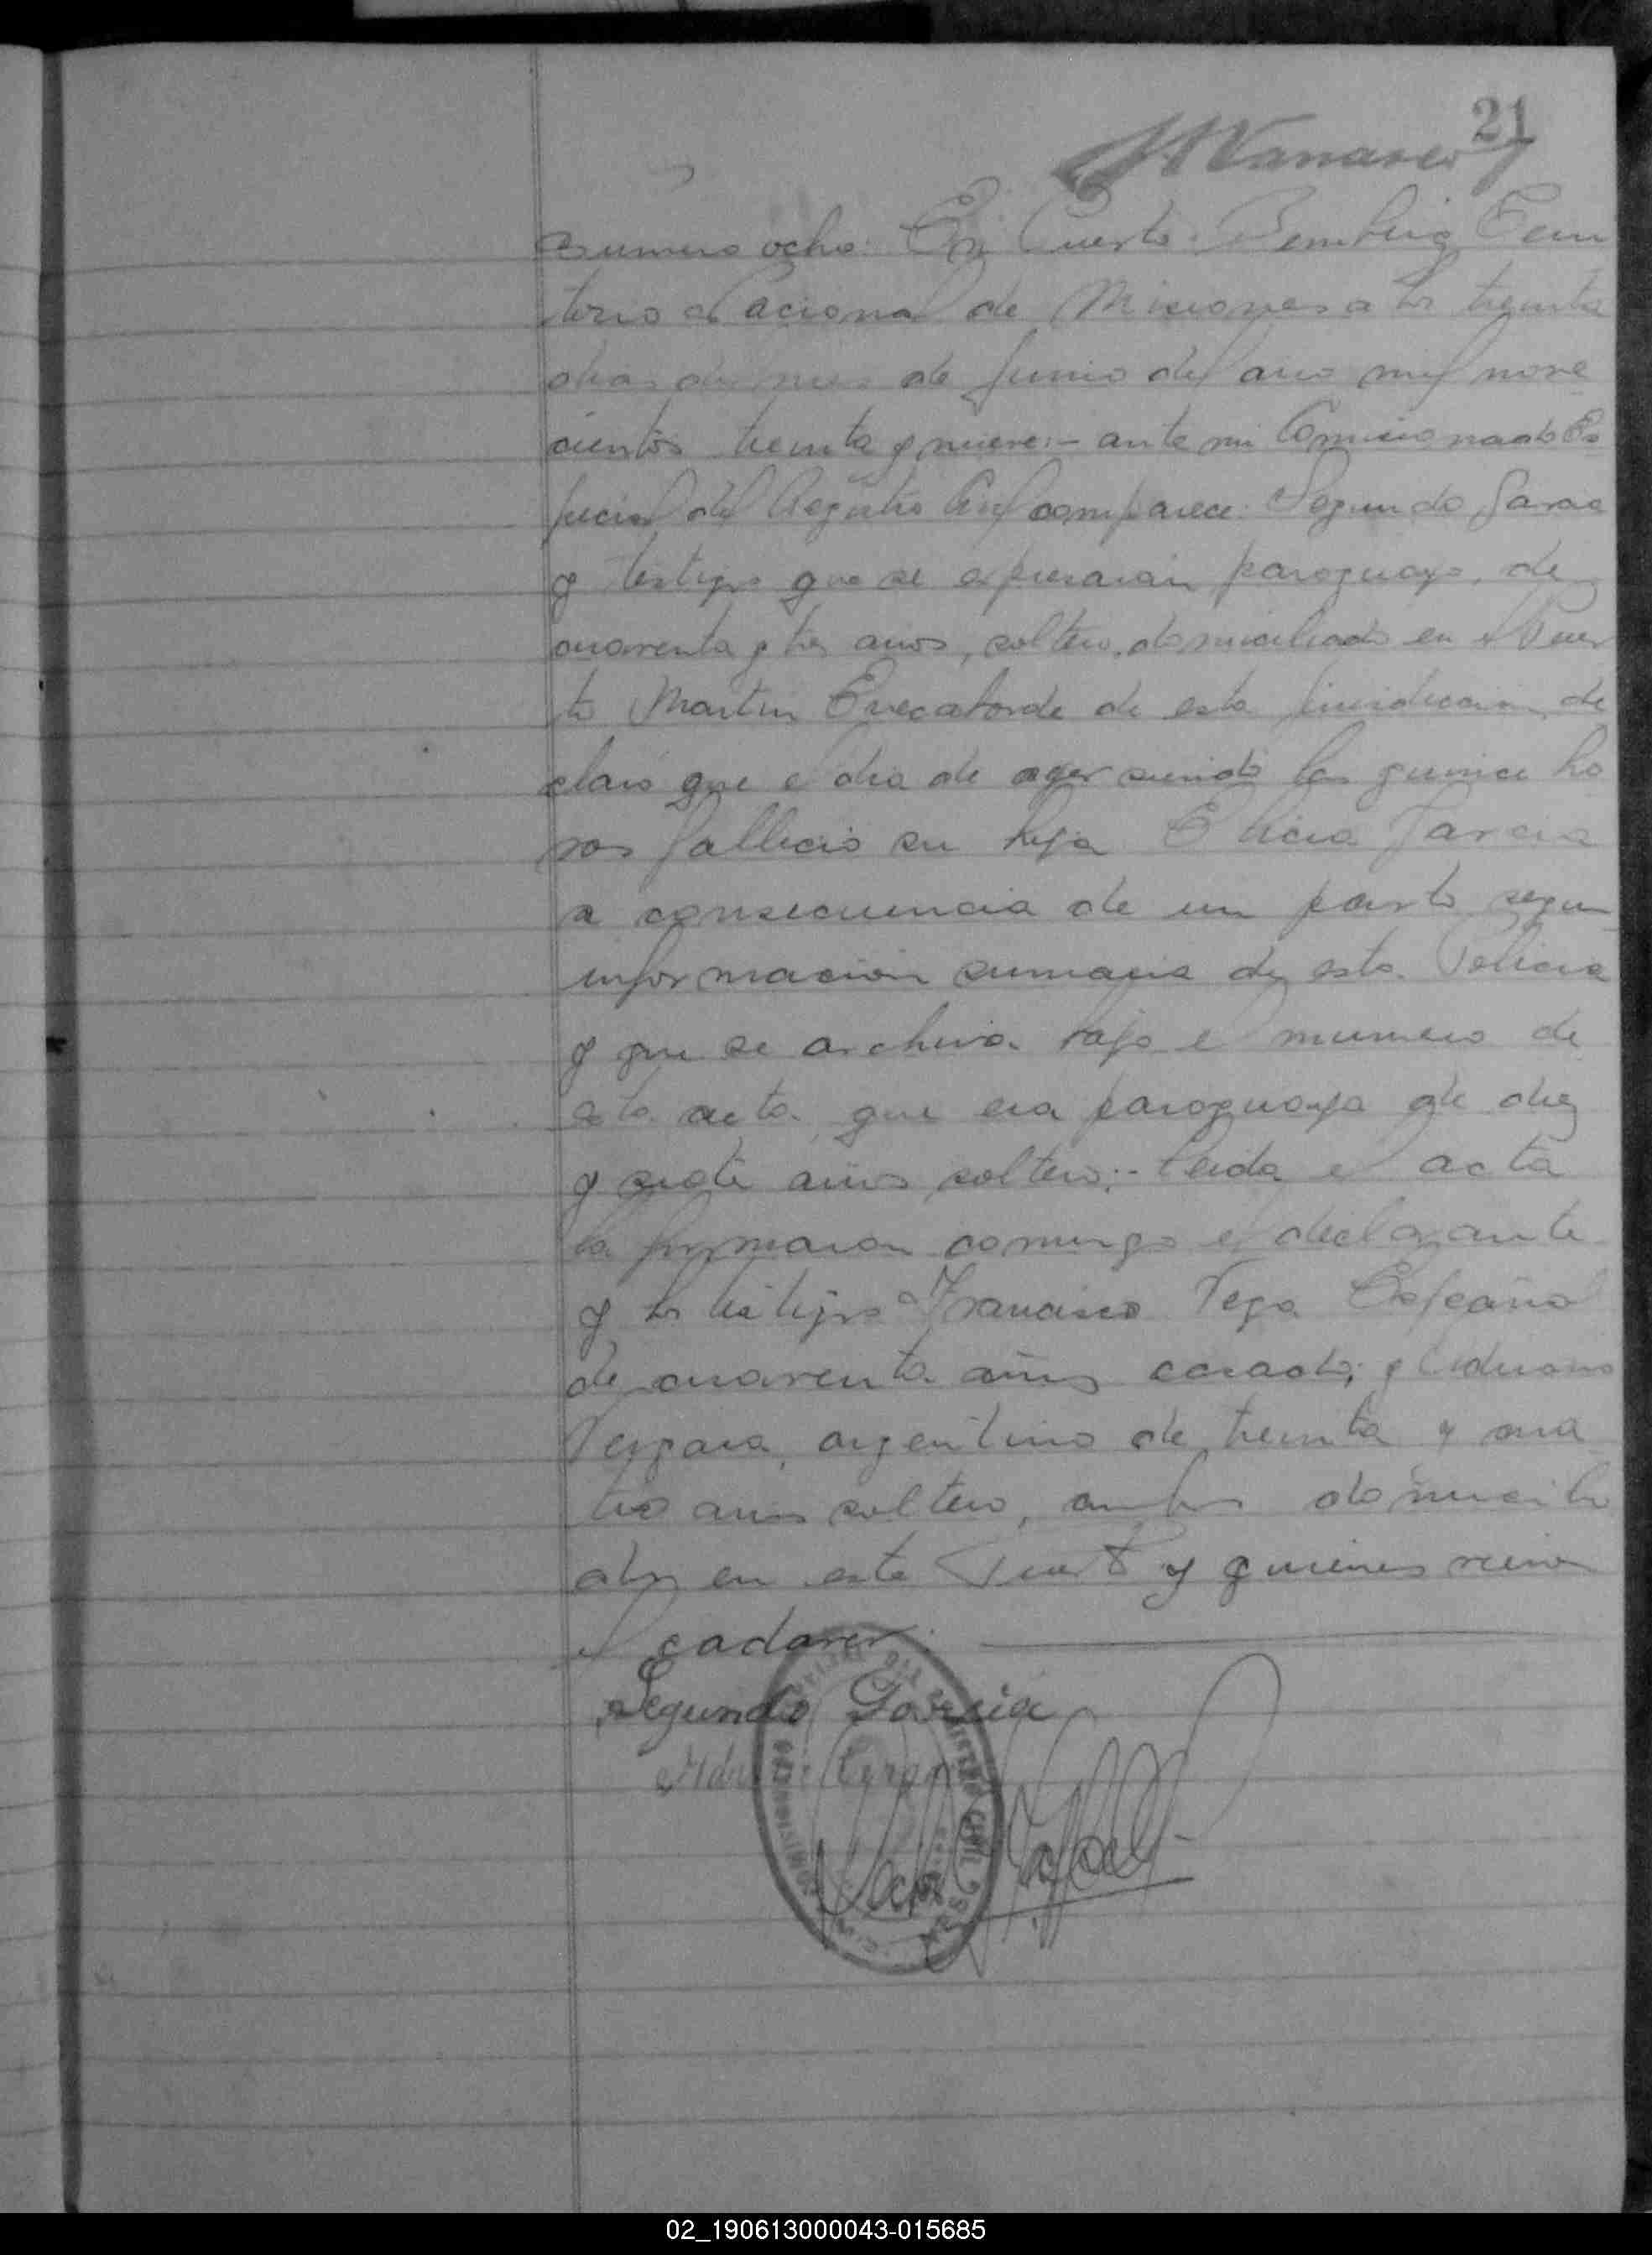 21
numero ocho: En Puerto Bemberg Terri
torio Nacional de Misiones a los treinta
dias del mes de Junio del año mil nove
cientos treinta y nueve:- ante mi Comisionado Es
pecial del Registro Civil comparece: Segundo Garcia
y testigos que se expresarán paraguayo, de
cuarenta y tres años, soltero, domiciliado en el Puer
to Martin de esta jurisdiccion, de
claró que el dia de ayer siendo las quince ho
ras fallecio su hija Garcia
a consecuencia de un parto segun
informacion sumaria de esta Policia
y que se archiva bajo el numero de
esta acta, que era paraguaya de diez
y siete años soltera:- Leida el acta
la firmaron conmigo el declarante
y los testigos Francisco Vega Español
de cuarenta años casado; y
Vergara, argentino de treinta y cua
tro años soltero, ambos domicilia
dos en este Puerto y quienes vieron
el cadaver.
Segundo Garcia
REGISTRO CIVIL
02_190613000043-015685